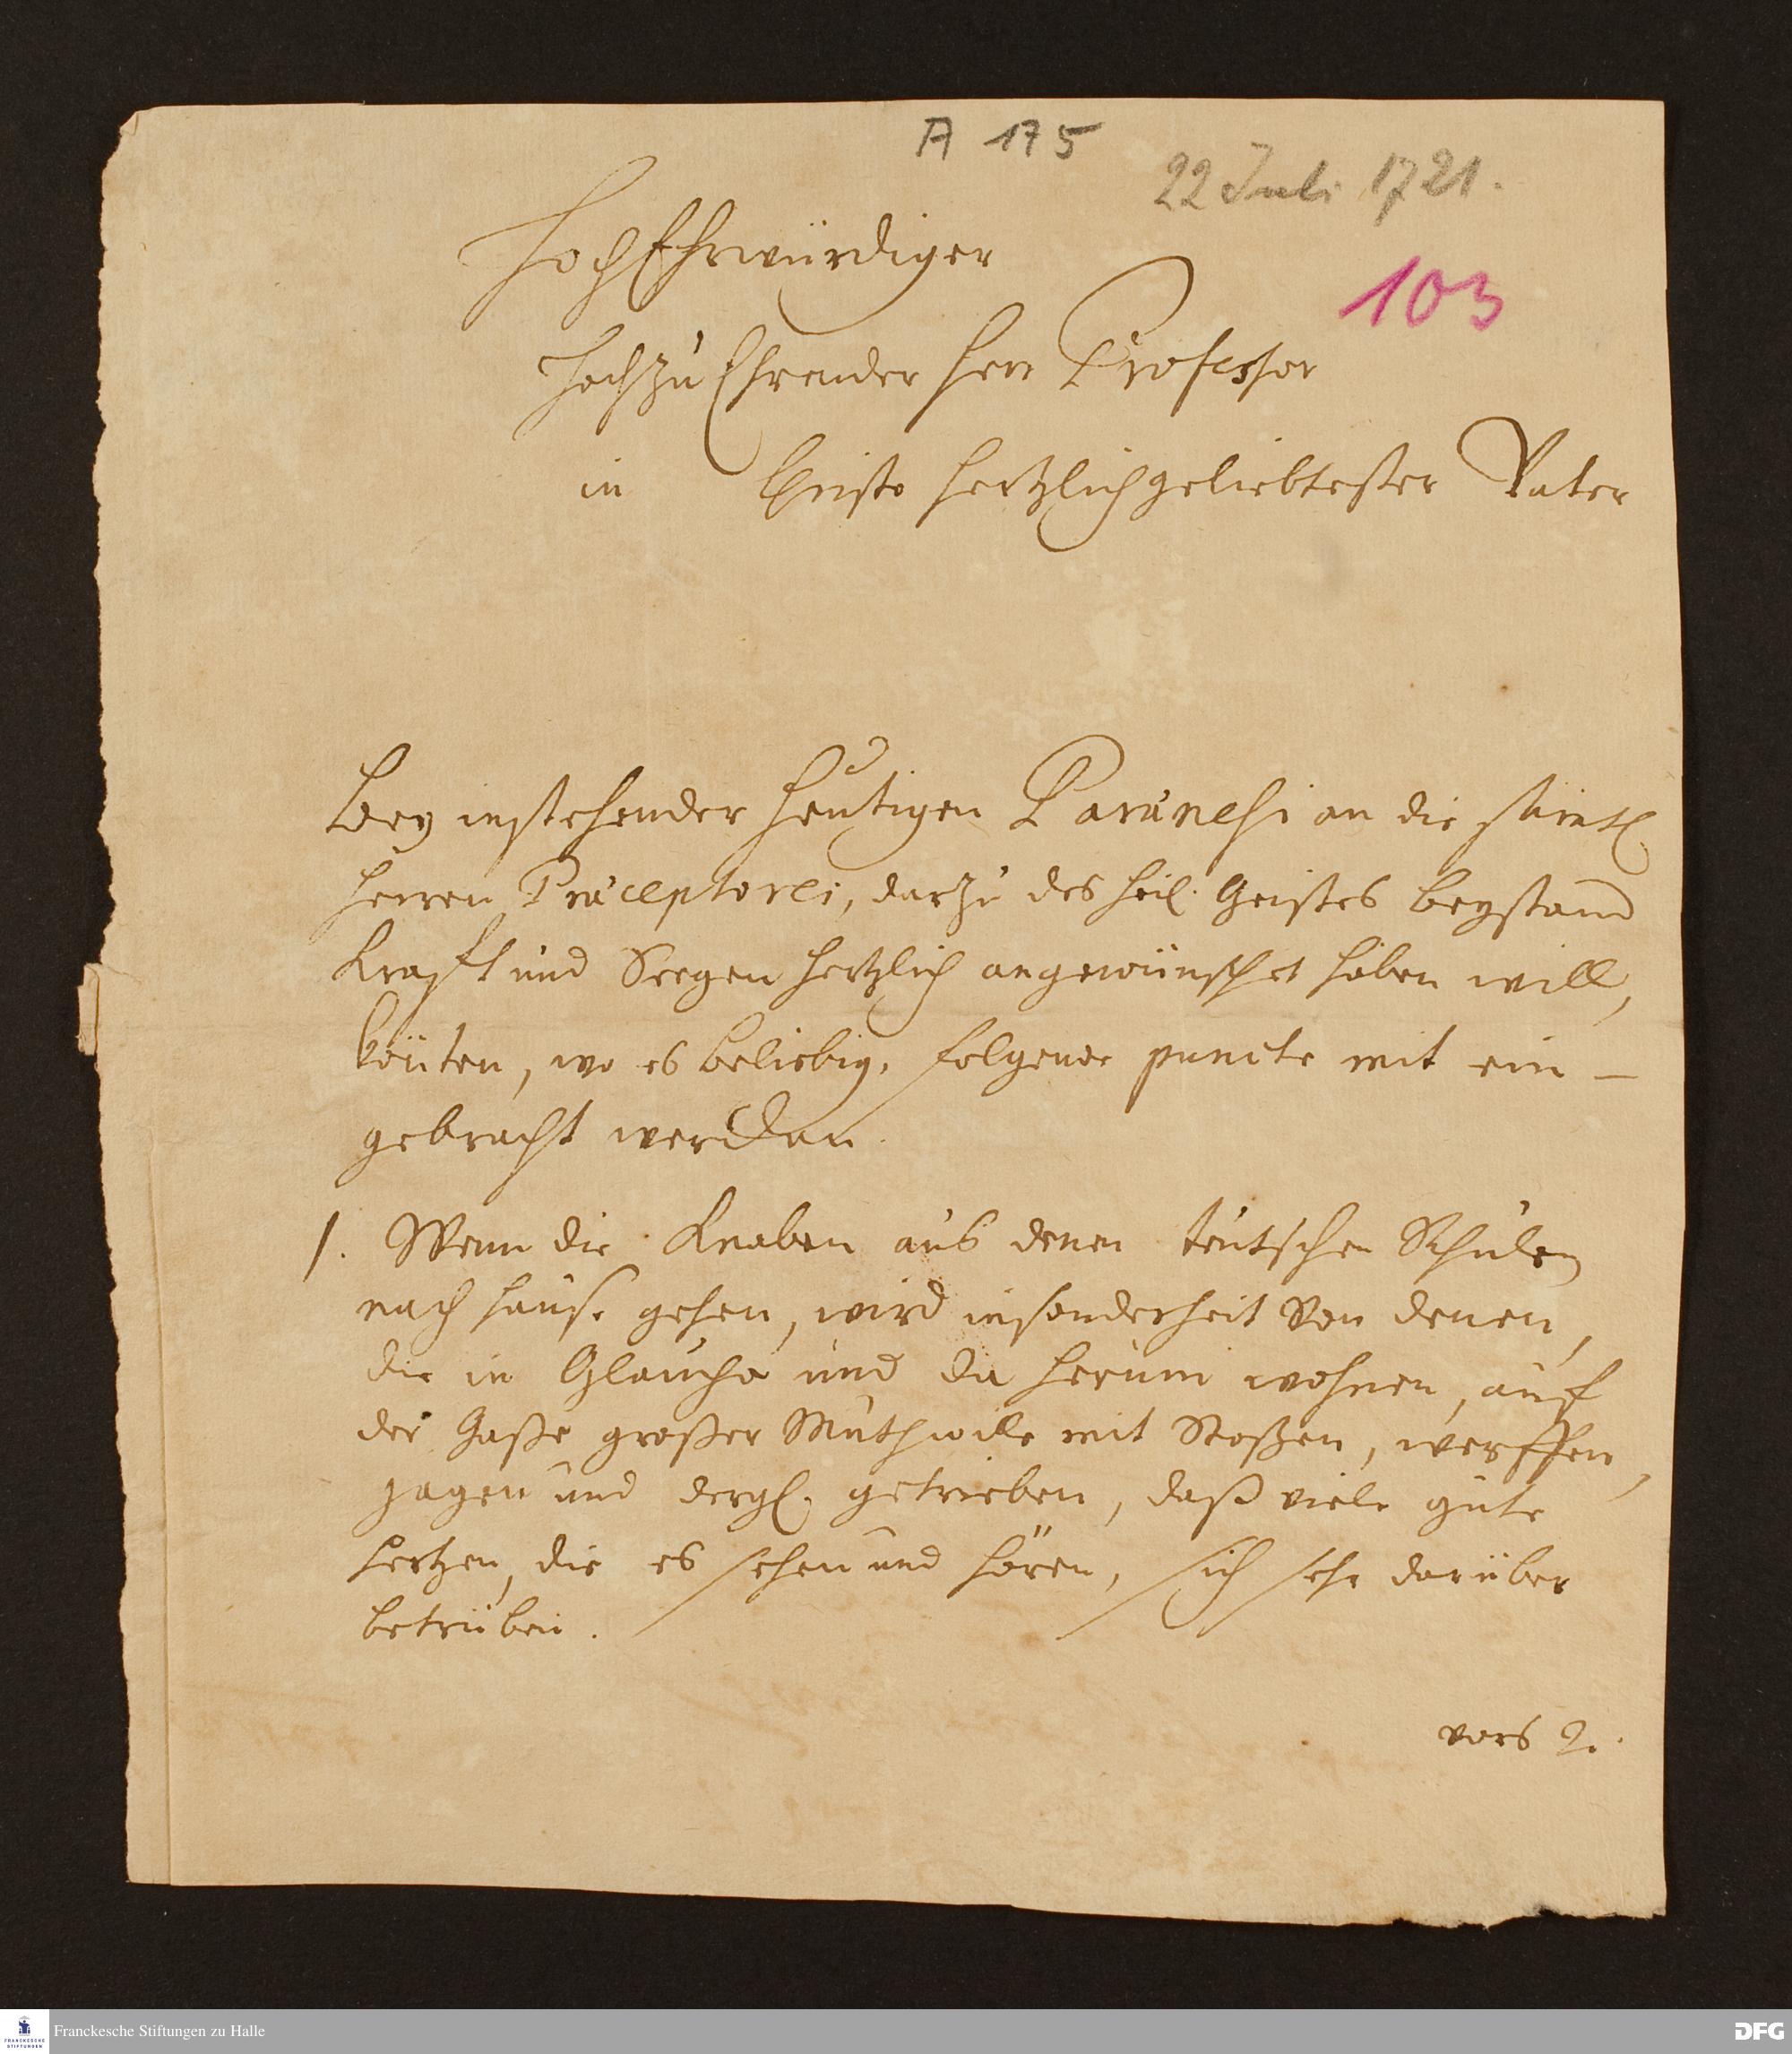 A 175
22 Juli 1721.
HochEhrwürdiger
103
Hochzu Ehrender Herr Professor
in Christo hertzlichgeliebtester Vater
Bey instehender heutigen Paränesi an die sämtl.
Herren Präceptores, darzu des heil. Geistes beystand
Krafft und Seegen hertzlich angewünschet haben will,
könten, wo es beliebig, folgende puncte mit ein-
gebracht werden.
1. Wenn die Knaben aus denen teutschen Schulen
nach Hause gehen, wird insonderheit von denen,
die in Glaucha und da herum wohnen, auf
der Gaße großer Muthwille mit Stoßen, werffen,
jagen und dergl. getrieben, daß viele gute
Hertzen, die es sehen und hören, sich sehr darüber
betrüben.
vors 2.
Franckesche Stiftungen zu Halle
FRANCKESCHE STIFTUNGEN
DFG